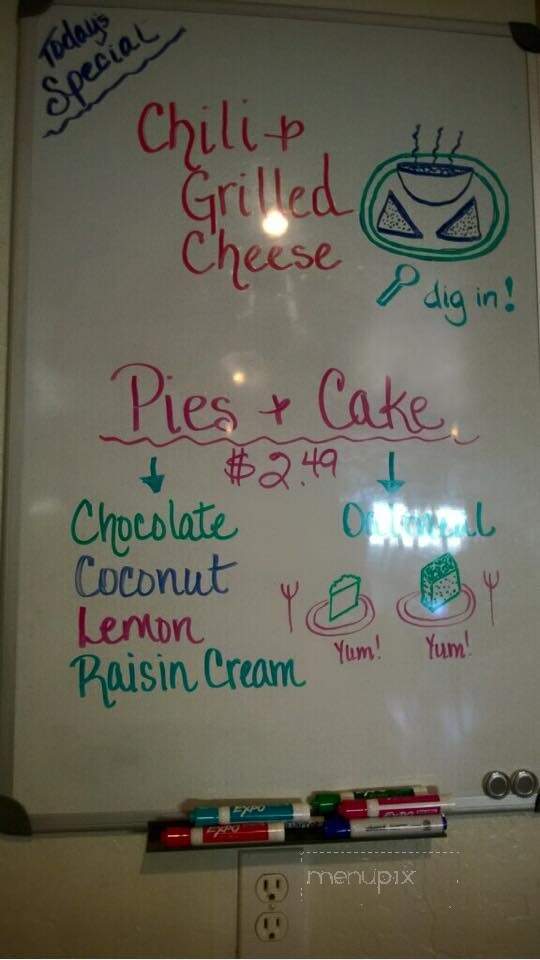 Today's
Special
Chili +
Grilled
Cheese
dig in!
Pies + Cake
$2.49
Chocolate
Oatmeal
Coconut
Lemon
Raisin Cream
Yum!
Yum!
EXPO
EXPO
EXPO
menupix